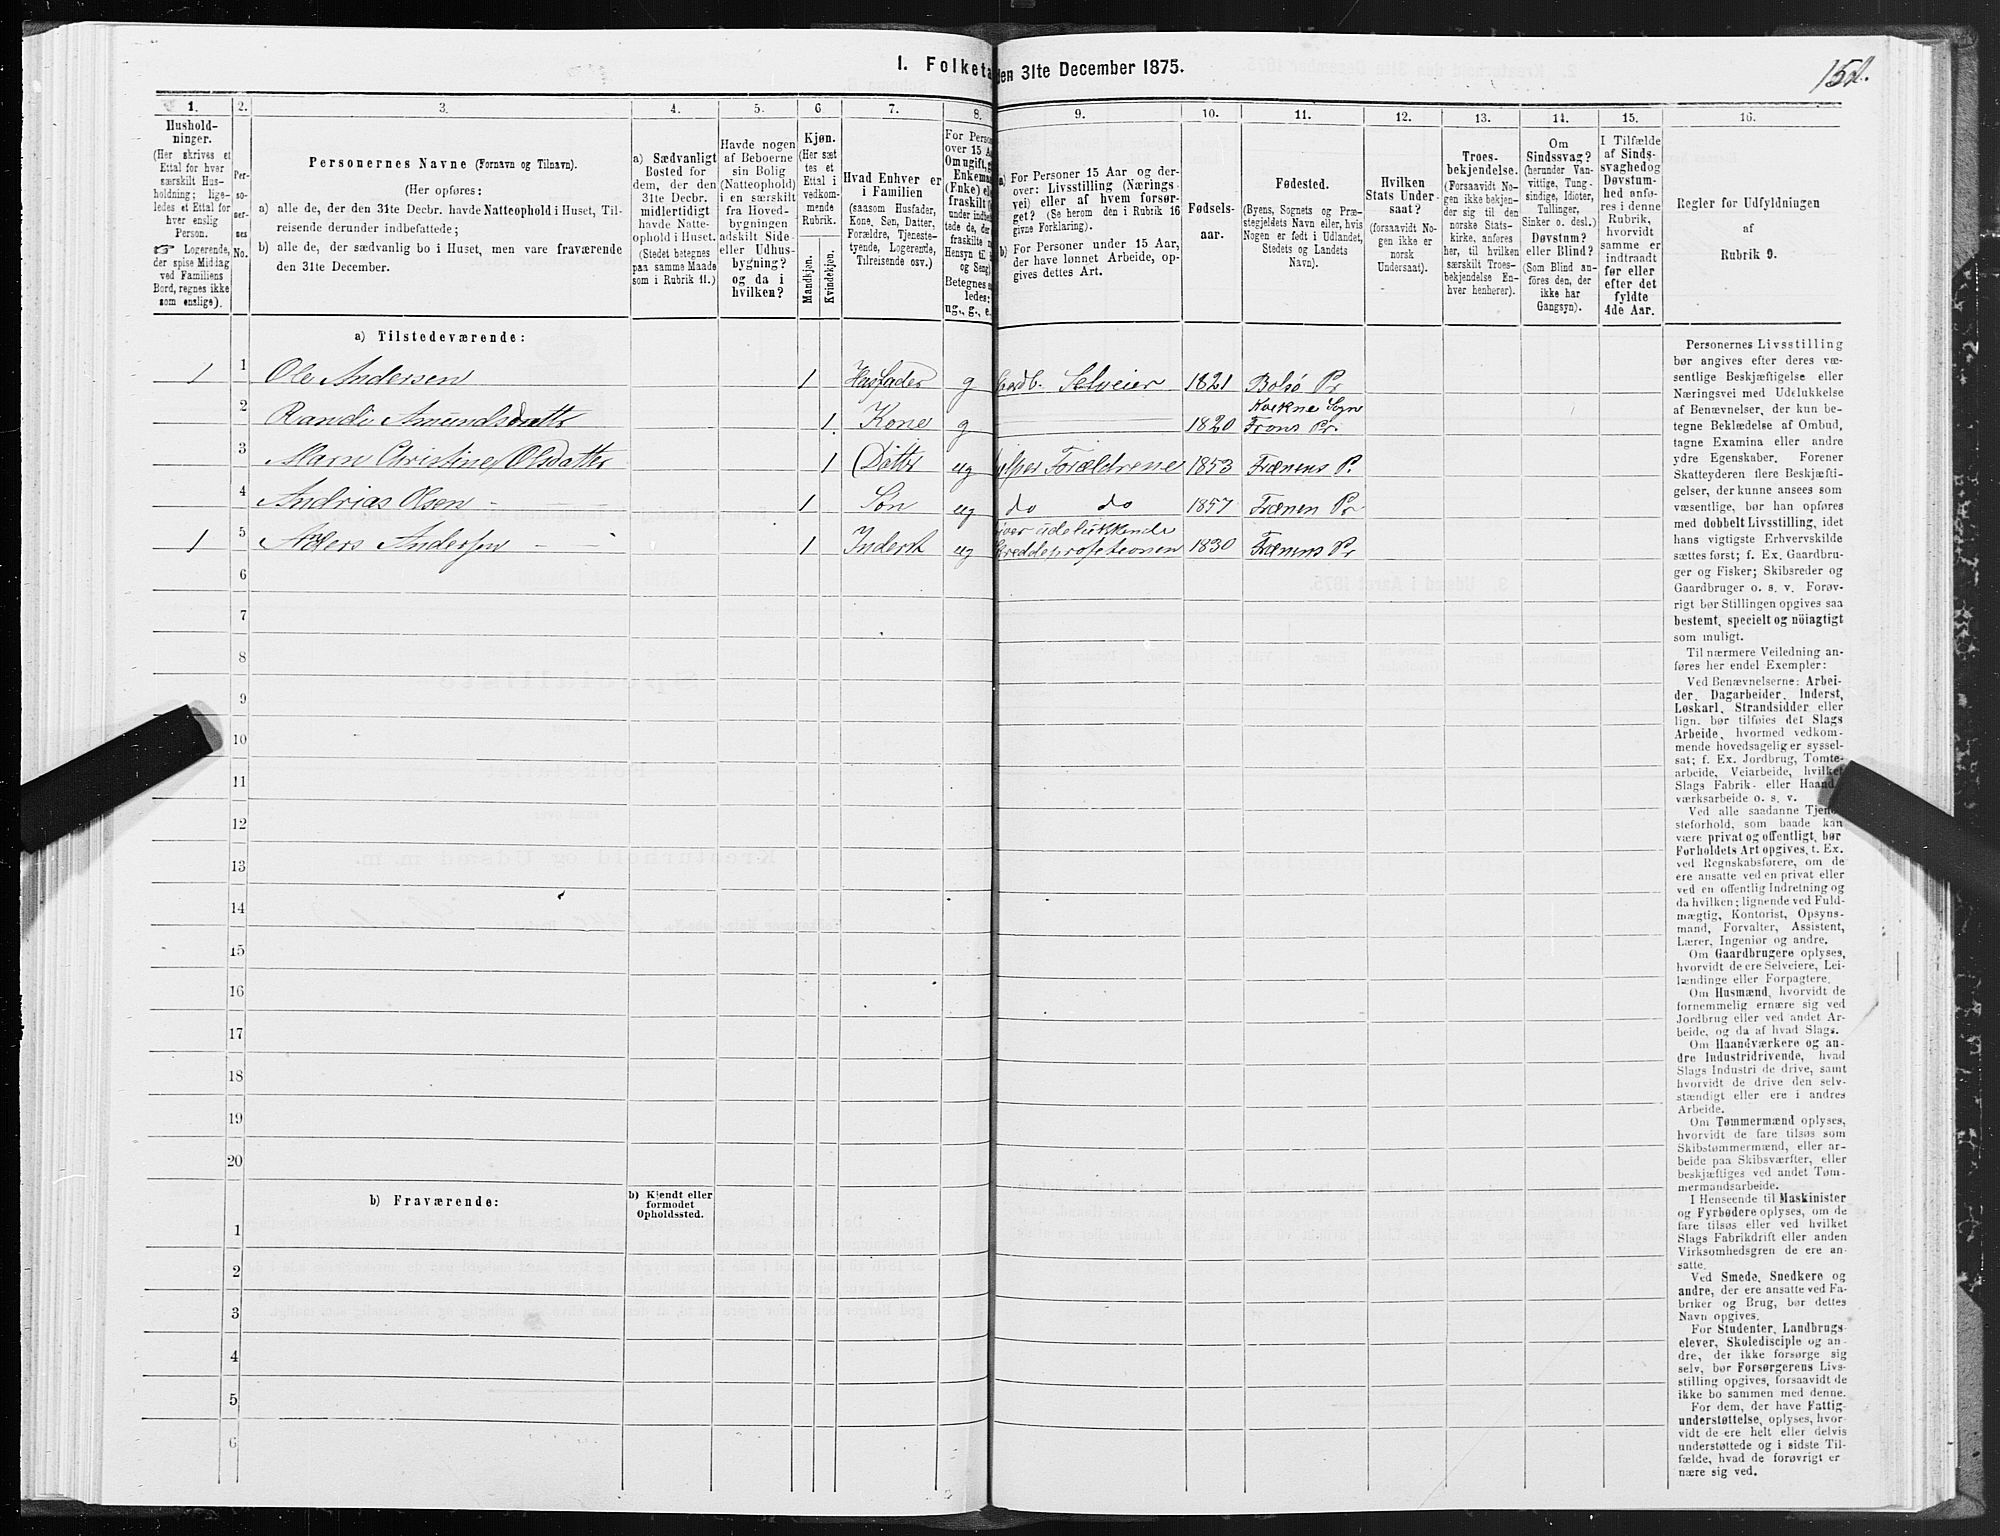 1. Folketæ
den 31te December 1875.
1.
2.
3.
4.
5.
6
7.
8.
9.
10.
11.
12.
13.
14.
15.
16.
Hushold-
ninger.
(Her skrives et
Ettal for hver
særskilt Hus-
holdning; lige-
ledes et Ettal for
hver enslig
Person.
☞ Logerende,
der spise Middag
ved Familiens
Bord, regnes ikke
som enslige).
Per-
so-
ner-
nes
No.
Personernes Navne (Fornavn og Tilnavn).
(Her opføres:
a) alle de, der den 31te Decbr. havde Natteophold i Huset, Til-
reisende derunder indbefattede;
b) alle de, der sædvanlig bo i Huset, men vare fraværende
den 31te December.
a) Sædvanligt
Bosted for
dem, der den
31te Decbr.
midlertidigt
havde Natte-
ophold i Huset.
(Stedet betegnes
paa samme Maade
som i Rubrik 11.)
Havde nogen
af Beboerne
sin Bolig
(Natteophold)
i en særskilt
fra Hoved-
bygningen
adskilt Side-
eller Udhus-
bygning?
og da i
hvilken?
Kjøn.
(Her sæt
tes et
Ettal i
vedkom-
mende
Rubrik.
Mandkjøn.
Kvindekjøn.
Hvad Enhver er
i Familien
(saasom Husfader,
Kone, Søn, Datter,
Forældre, Tjeneste-
tyende, Logerende,
Tilreisende osv.)
For Perso
over 15 A
Om ugift, g
Enkema
(Enke) el
fraskilt
under indb
tede de, de
fraskilte
Hensyn til
og Seng
Betegnes
ledes:
ug., g., e.
a) For Personer 15 Aar og der-
over: Livsstilling (Nærings-
vei) eller af hvem forsør-
get? (Se herom den i Rubrik 16
givne Forklaring).
b) For Personer under 15 Aar,
der have lønnet Arbeide, op-
gives dettes Art.
Fødsels-
aar.
Fødested.
(Byens, Sognets og Præ-
stegjeldets Navn eller, hvis
Nogen er født i Udlandet,
Stedets og Landets
Navn).
Hvilken
Stats Under-
saat?
(forsaavidt No-
gen ikke er
norsk
Undersaat).
Troes-
bekjendelse.
(Forsaavidt No-
gen ikke bekjen-
der sig til den
norske Stats-
kirke, anføres
her, til hvilken
særskilt Troes-
bekjendelse En-
hver henhører).
Om
Sindssvag?
(herunder Van-
vittige, Tung-
sindige, Idioter,
Tullinger,
Sinker o. desl.)
Døvstum?
eller Blind?
(Som Blind an-
føres den, der
ikke har
Gangsyn).
I Tilfælde
af Sinds-
svaghed og
Døvstum-
hed anfø-
res i denne
Rubrik,
hvorvidt
samme er
indtraadt
før eller
efter det
fyldte
4de Aar.
Regler for Udfyldningen
af
Rubrik 9.
a) Tilstedeværende:
1 1 Ole Andersen 1 Husfader g Gaardb. Selveier 1821 Bolsø Pr
Kvikne Sogn
2 Randi Amundsdatter 1 Kone g 1820 Frons Pr.
3 Maren Christine Olsdatter 1 Datter ug hjelper Forældrene 1853 Frænens P.
4 Andrias Olsen 1 Søn ug do do 1857 Frænen Pr
driver udelukkende
1 5 Anders Andersen 1 Inderst ug Skredderprofetionen 1830 Frænens Pr
6
7
8
9
10
11
12
13
14
15
16
17
18
19
20
b) Fraværende:
b) Kjendt eller
formodet
Opholdssted.
1
2
3
4
5
6
Personernes Livsstilling
bør angives efter deres væ-
sentlige Beskjæftigelse eller
Næringsvei med Udelukkelse
af Benævnelser, der kun be-
tegne Beklædelse af Ombud,
tagne Examina eller andre
ydre Egenskaber. Forener
Skatteyderen flere Beskjæfti-
gelser, der kunne ansees som
væsentlige, bør han opføres
med dobbelt Livsstilling, idet
hans vigtigste Erhvervskilde
sættes først; f. Ex. Gaardbru-
ger og Fisker; Skibsreder og
Gaardbruger o. s. v. Forøv-
rigt bør Stillingen opgives saa
bestemt, specielt og nöiagtigt
som muligt.
Til nærmere Veiledning an-
føres her endel Exempler:
Ved Benævnelserne: Arbei-
der, Dagarbeider, Inderst,
Løskarl, Strandsidder eller
lign. bør tilføies det Slags
Arbeide, hvormed vedkom-
mende hovedsagelig er syssel-
sat; f. Ex. Jordbrug, Tomte-
arbeide, Veiarbeide, hvilket
Slags Fabrik- eller Haand-
værksarbeide o. s. v.
Ved alle saadanne Tjene-
steforhold, som baade kan
være privat og offentligt, bør
Forholdets Art opgives, t. Ex.
ved Regnskabsførere, om de
ere ansatte ved en privat eller
ved en offentlig Indretning og
da hvilken; lignende ved Fuld-
mægtig, Kontorist, Opsyns-
mand, Forvalter, Assistent,
Lærer, Ingeniør og andre.
Om Gaardbrugere oplyses,
hvorvidt de ere Selveiere, Lei-
lændinge eller Forpagtere.
Om Husmænd, hvorvidt de
fornemmelig ernære sig ved
Jordbrug eller ved andet Ar-
beide, og da af hvad Slags.
Om Haandværkere og an-
dre Industridrivende, hvad
Slags Industri de drive, samt
hvorvidt de drive den selv-
stændigt eller ere i andres
Arbeide.
Om Tømmermænd oplyses,
hvorvidt de fare tilsøs som
Skibstømmermænd, eller ar-
beide paa Skibsværfter, eller
beskjæftiges ved andet Tøm-
mermandsarbeide.
I Henseende til Maskinister
og Fyrbødere oplyses, om de
fare tilsøs eller ved hvilket
Slags Fabrikdrift eller anden
Virksomhedsgren de ere an-
satte.
Ved Smede, Snedkere og
andre, der ere ansatte ved Fa-
briker og Brug, bør dettes
Navn opgives.
For Studenter, Landbrugs-
elever, Skoledisciple og an-
dre, der ikke forsørge sig
selv, bør Forsørgerens Livs-
stilling opgives, forsaavidt de
ikke bo sammen med denne.
For dem, der have Fattig-
understøttelse, oplyses, hvor-
vidt de ere helt eller delvis
understøttede og i sidste Til-
fælde, hvad de forøvrigt er
nære sig ved.